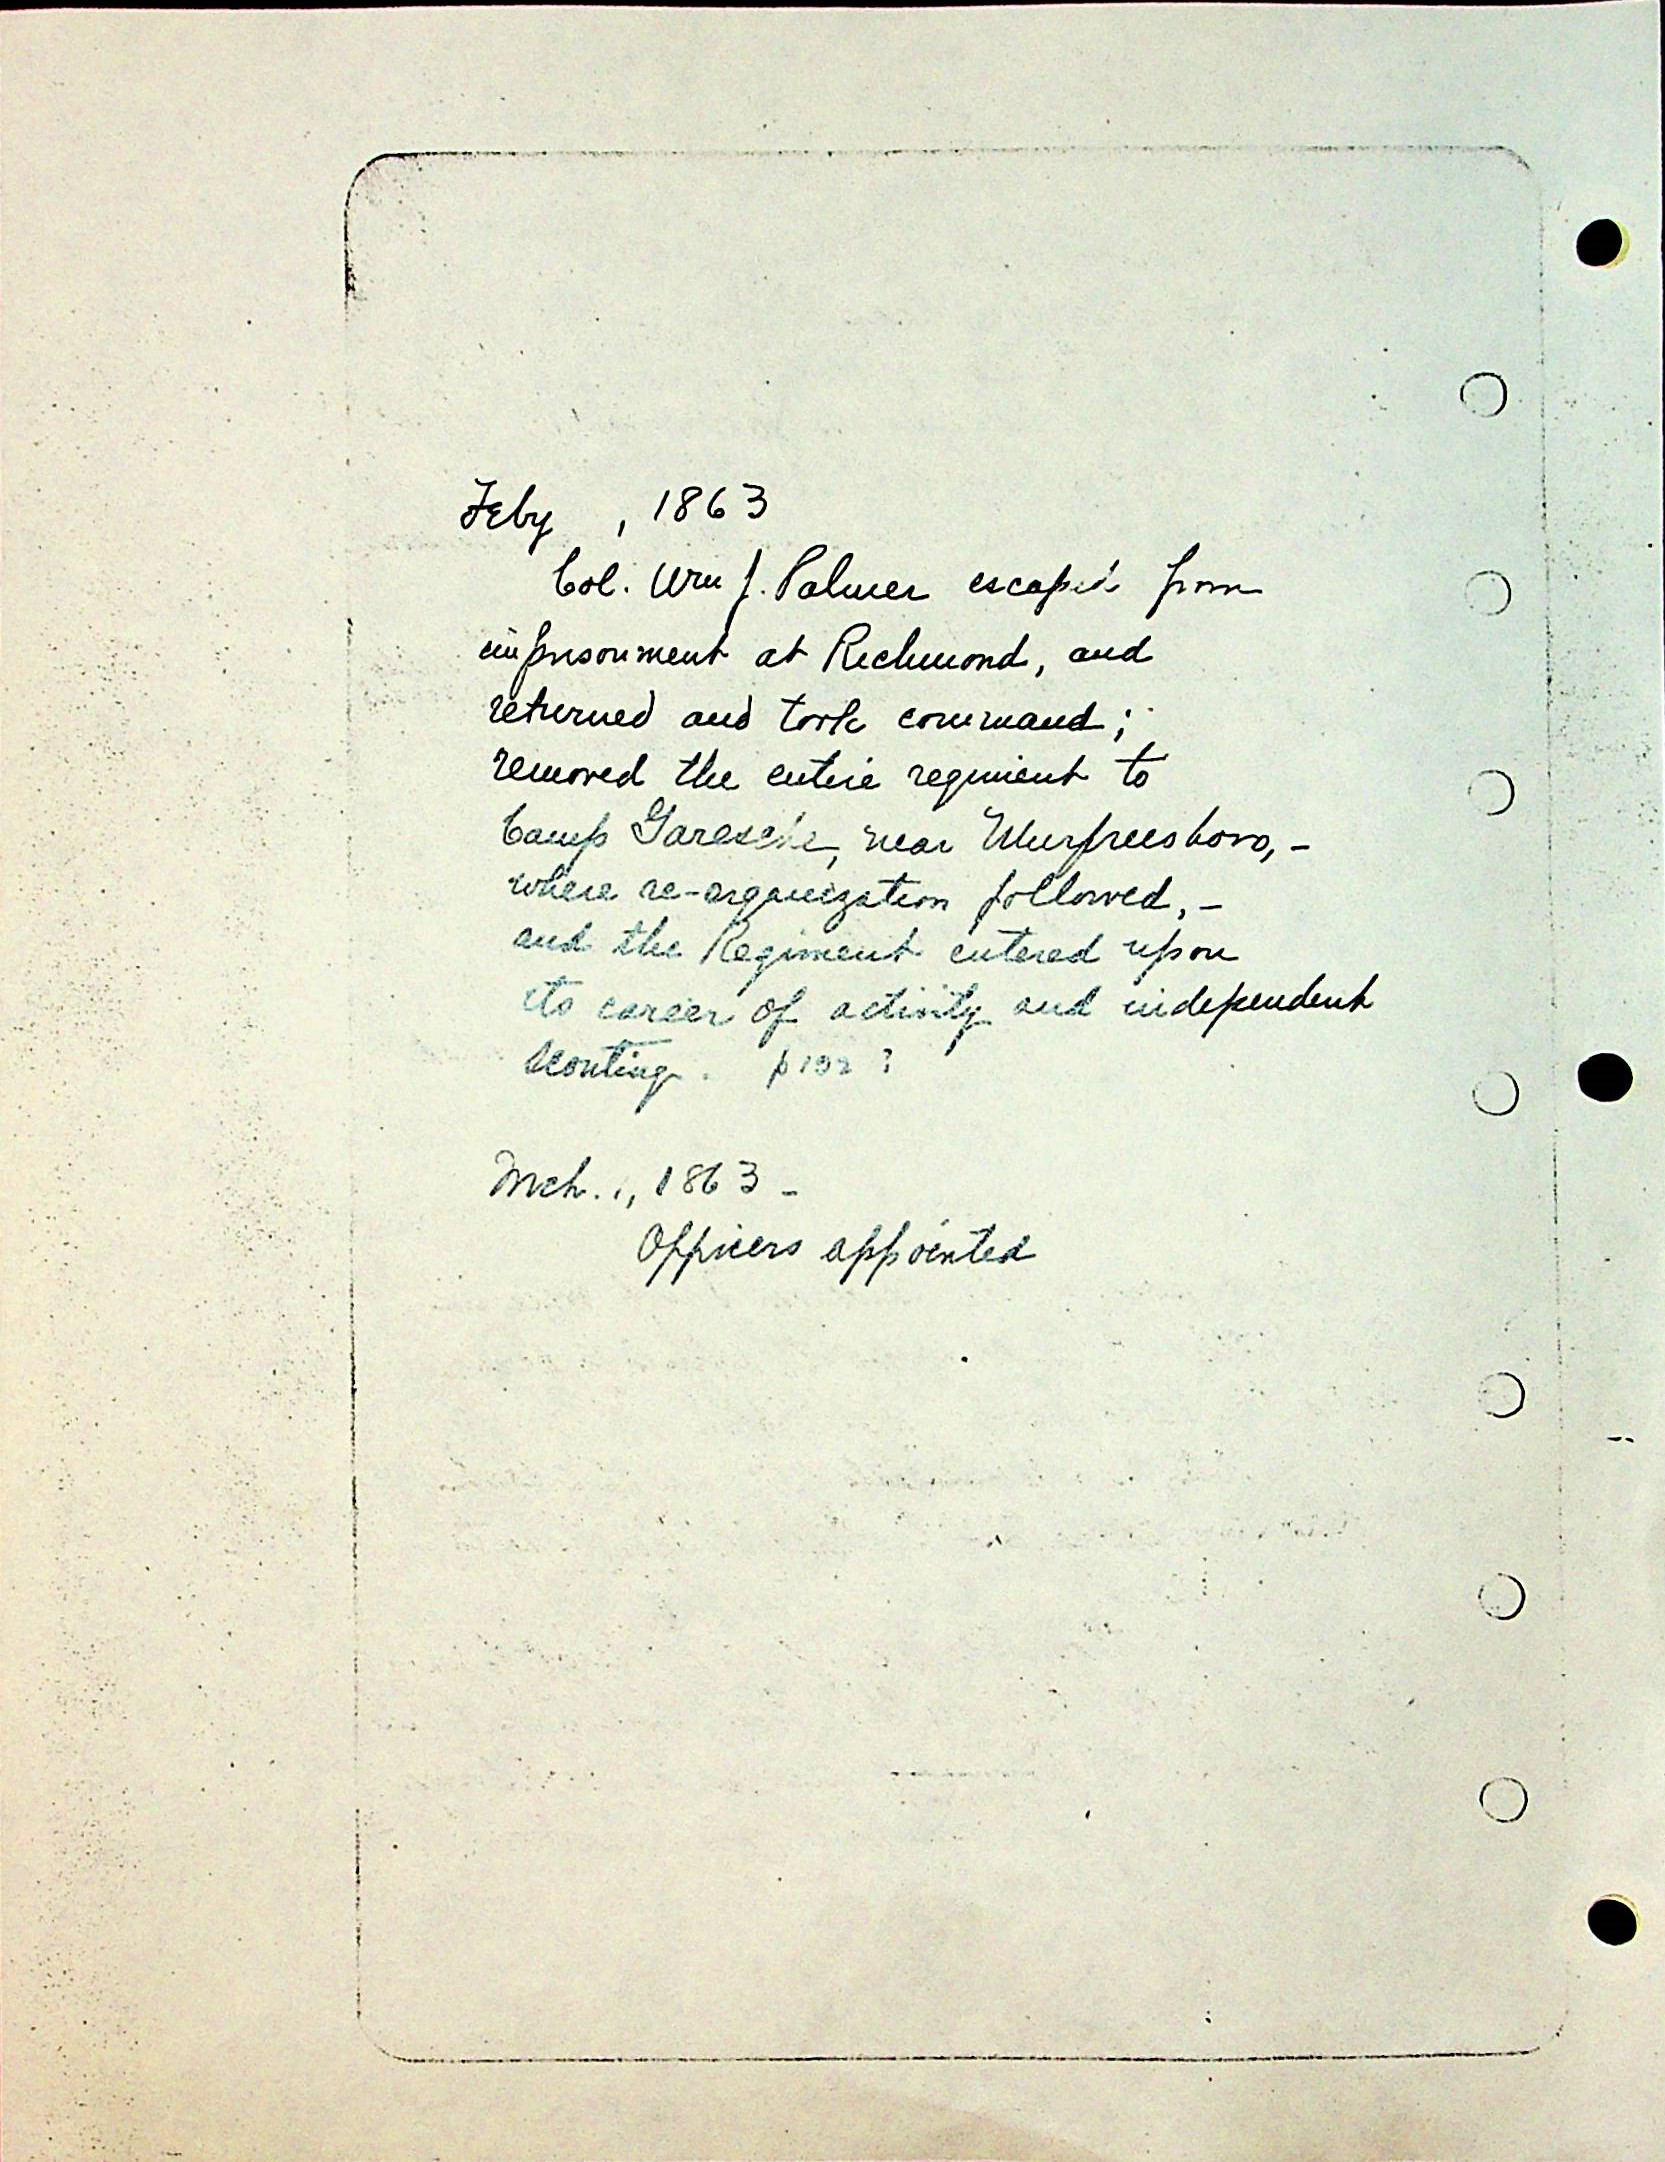 Feby , 1863
Col. Wm J. Palmer escaped from
imprisonment at Richmond, and
returned and took command;
removed the entire regiment to
Camp Garesche, near Murfreesboro, -
where re-organization followed, -
and the Regiment entered upon
its career of activity and independent
scouting. p 192 ?
Mch. , 1863 -
Officers appointed